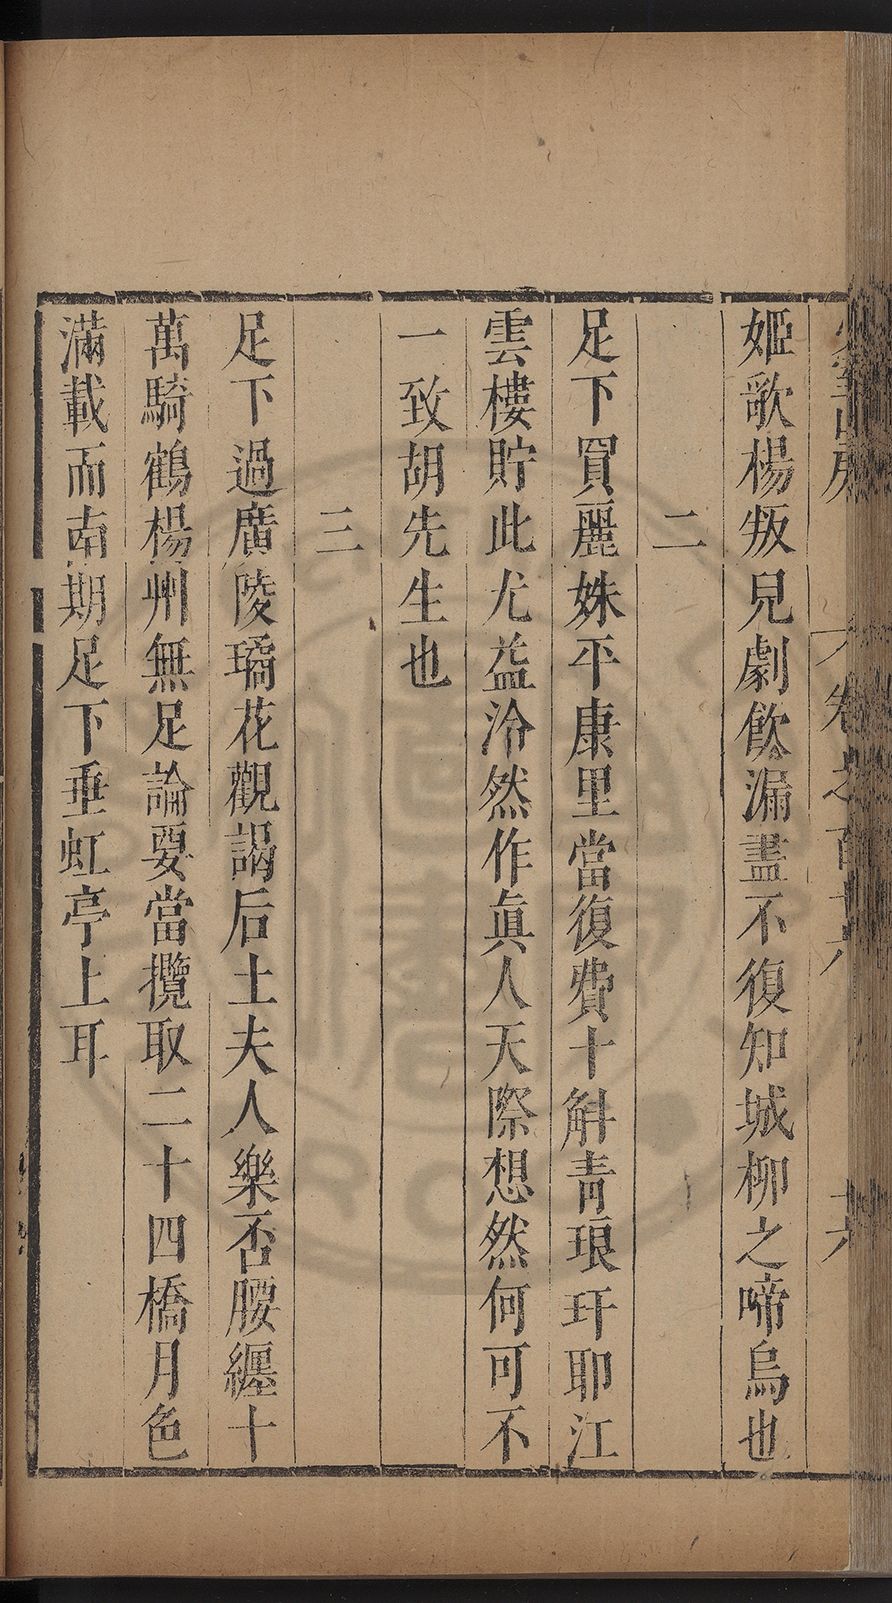 姬歌楊叛兒劇飲漏盡不復知城柳之啼烏也
二
足下買麗姝平康里當復費十斛青琅玕耶江
雲樓貯此尤益泠然作眞人天際想然何可不
一致胡先生也
三
足下過廣陵璚花觀謁后土夫人樂否腰纏十
萬騎鶴楊州無足論要當攬取二十四橋月色
滿載而南期足下垂虹亭上耳